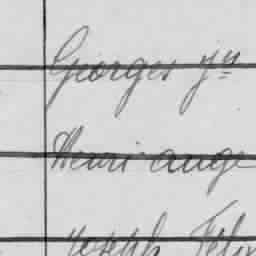 Georges Jn
Henri ange
Joseph Félix